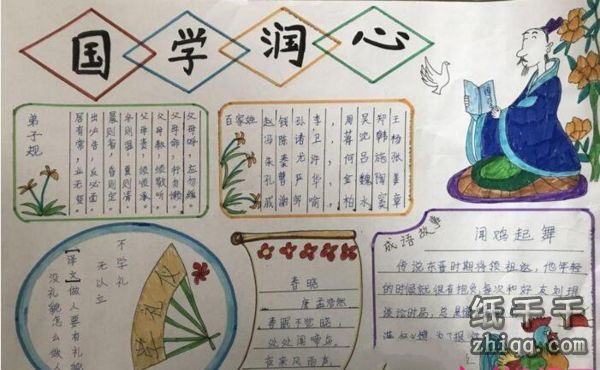 国学润心
弟子规
父母呼，应勿缓。
父母命，行勿懒。
父母教，须敬听。
父母责，须顺承。
冬则温，夏则清。
晨则省，昏则定。
出必告，反必面。
居有常，业无变。
百家姓
赵钱孙李，周吴郑王
冯陈诸卫，蒋沈韩杨
朱秦尤许，何吕施张
孔曹严华，金魏陶姜
戚谢邹喻，柏水窦章
不学礼
无以立
【译文】做人要有礼
没礼貌怎么做人
学礼仪
春晓
唐 孟浩然
春眠不觉晓，
处处闻啼鸟。
夜来风雨声，
成语故事
闻鸡起舞
传说东晋时期将领祖逖，他年轻
的时候就很有抱负，每次和好友刘琨
谈论时局，总是
满
纸千千
zhiqq.com